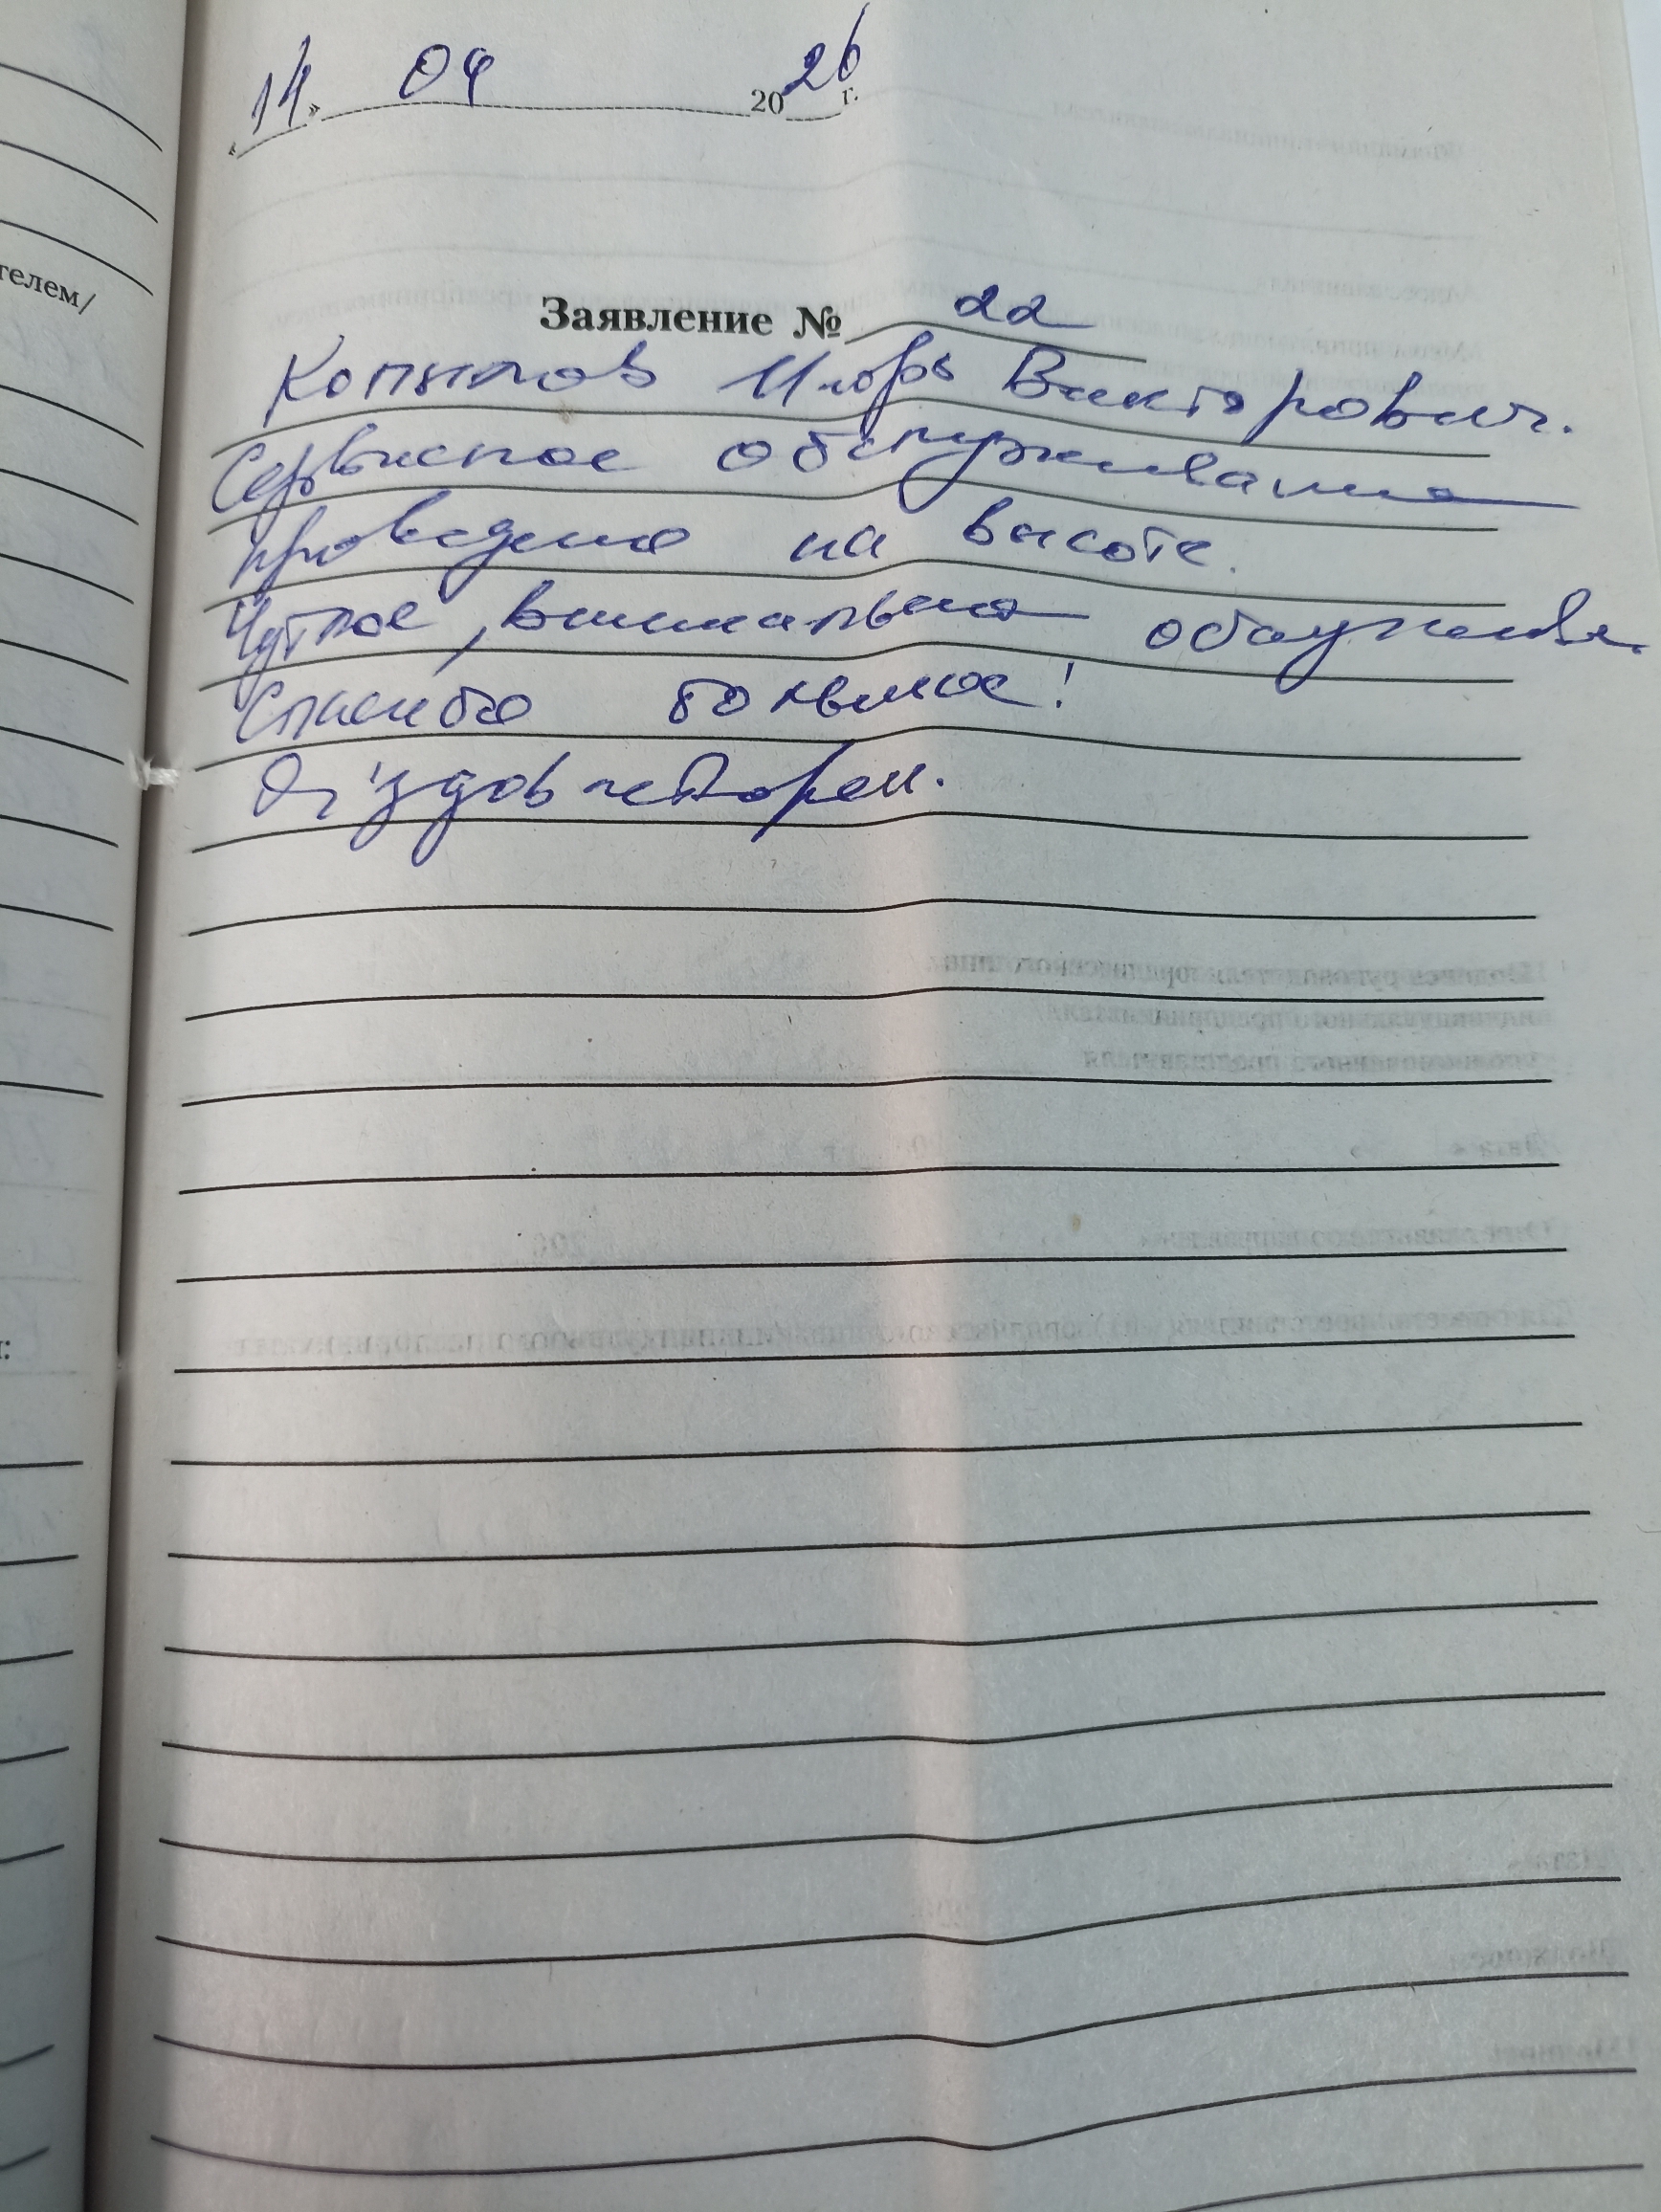 телем/
«14» 04 2026 г.
Заявление № 22
Копылов Игорь Викторович.
Сервисное обслуживание
проведено на высоте.
Чуткое, внимательное обслужив.
Спасибо большое!
Я удовлетворен.